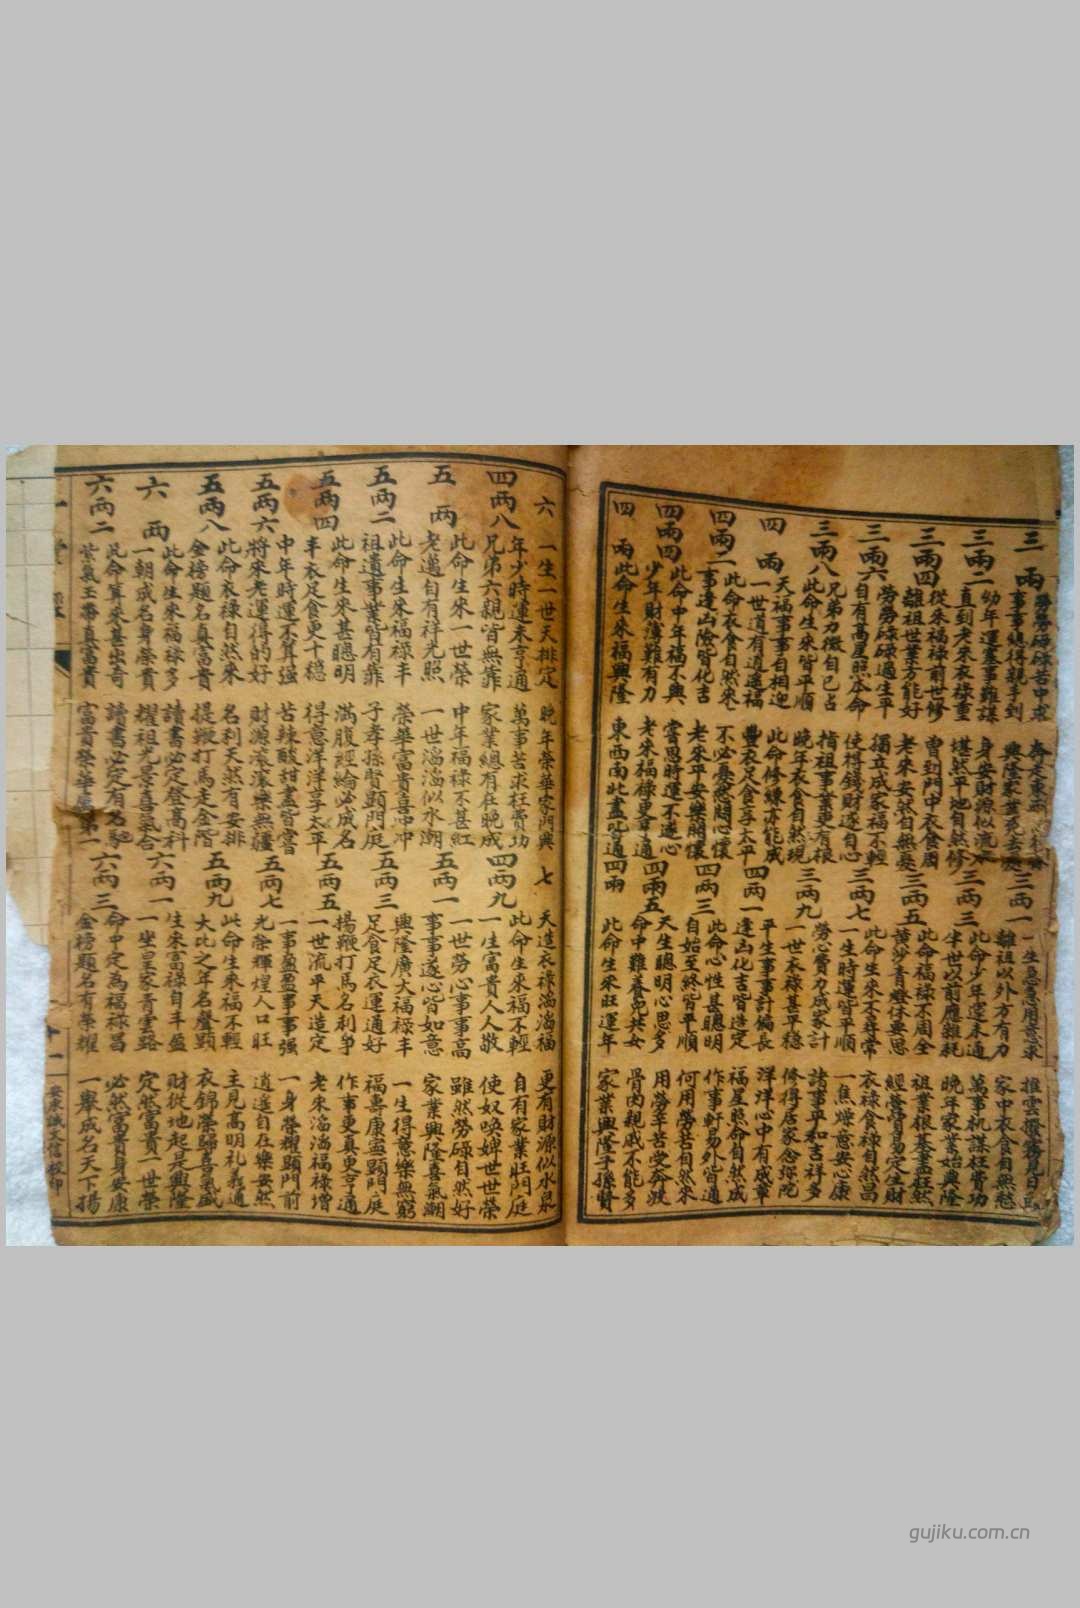 三兩
勞勞碌碌苦中求 奔走東西
事事總得親手到 興隆家業
三兩二
幼年運蹇事難謀 身安財源似流水
直到老來衣祿重 堪然平地自然修
三兩四
從來福祿前世修 曾到門中衣食周
離祖世業方能好 老來安然自無憂
三兩六
勞勞碌碌過生平 獨立成家福不輕
自有高星照本命 使得錢財遂自心
三兩八
兄弟力微自己占 指祖事業更有根
此命生來皆平順 晚年衣食自然現
四兩
天福事事自相迎 此命修練亦能成
一世道有逍遥福 豐衣足食享太平
四兩二
此命衣食自然來 不必憂愁悶心懷
事逢山險皆化吉 老來平安樂開懷
四兩四
此命中年福不興 嘗思時運不遂心
少年財薄難有力 老來福祿更亨通
四兩
此命生來福興隆 東西南北盡吃通
三兩一
一生急急用意求 推雲撥霧見日
離祖以外方有力 家中衣食自無愁
三兩三
此命少年運未通 萬事机謀枉費功
半世以前應雜耗 晚年家業始興隆
三兩五
此命福祿不周全 祖業根基盡枉然
黃沙青燈休要思 經營貿易定生財
三兩七
此命生來不尋常 衣祿食祿自然昌
一生時運皆平順 一焦燥意安心康
三兩九
勞心費力成家計 諸事平和吉祥多
一世衣祿甚平穩 修得居家念弥陀
四兩一
平生事事計偏長 洋洋心中有成章
逢山化吉皆造定 福星照命自然成
四兩三
此命心性甚聰明 作事軒易外皆通
自始至終皆平順 何用勞苦自然來
四兩五
天生聰明心思多 用勞辛苦受奔波
命中難養兒共女 骨肉親戚不能多
四兩
此命生來旺運年 家業興隆子孫賢
六
一生一世天排定 晚年榮華家門興
四兩八
年少時運未亨通 萬事苦求枉費功
兄弟六親皆無靠 家業總有在晚成
五兩
此命生來一世榮 中年福祿不甚紅
老邁自有祥光照 一世滔滔似水潮
五兩二
此命生來福祿丰 榮華富貴喜冲冲
祖遺事業皆有靠 子孝孫賢顯門庭
五兩四
此命生來甚聰明 滿腹經綸必成名
丰衣足食更十穩 得意洋洋享太平
五兩六
中年時運不算强 苦辣酸甜盡皆嘗
將來老運得的好 財源滚滚樂無疆
五兩八
此命衣祿自然來 名利天然有安排
金榜題名真富貴 提鞭打馬走金階
六兩
此命生來福祿多 讀書必定登高科
一朝成名身榮貴 耀祖光宗喜氣合
六兩二
此命算來甚出奇 讀書必定有名
紫氣玉帶真富貴 富貴榮華屬第一
七
天造衣祿滔滔福 更有財源似水泉
四兩九
此命生來福不輕 自有家業旺門庭
一生富貴人人敬 使奴喚婢世世榮
五兩一
一世勞心事事高 雖然勞碌自然好
事事遂心皆如意 家業興隆喜氣潮
五兩三
興隆廣大福祿丰 一生得意樂無窮
足食足衣運通好 福壽康寧顯門庭
五兩五
揚鞭打馬名利爭 作事更真更亨通
一世流平天造定 老來滔滔福祿增
五兩七
一事盈盈事事强 一身榮耀顯門前
光榮輝煌人口旺 逍遥自在樂安然
五兩九
此命生來福不輕 主見高明礼義通
大比之年名聲顯 衣錦榮歸喜氣盛
六兩一
生來富祿自丰盈 財從地起是興隆
一坐皇家青雲路 定然富貴一世榮
六兩三
命中定為福祿昌 必然富貴身安康
金榜題名有榮耀 一舉成名天下揚
十一
安東誠文信校印
gujiku.com.cn